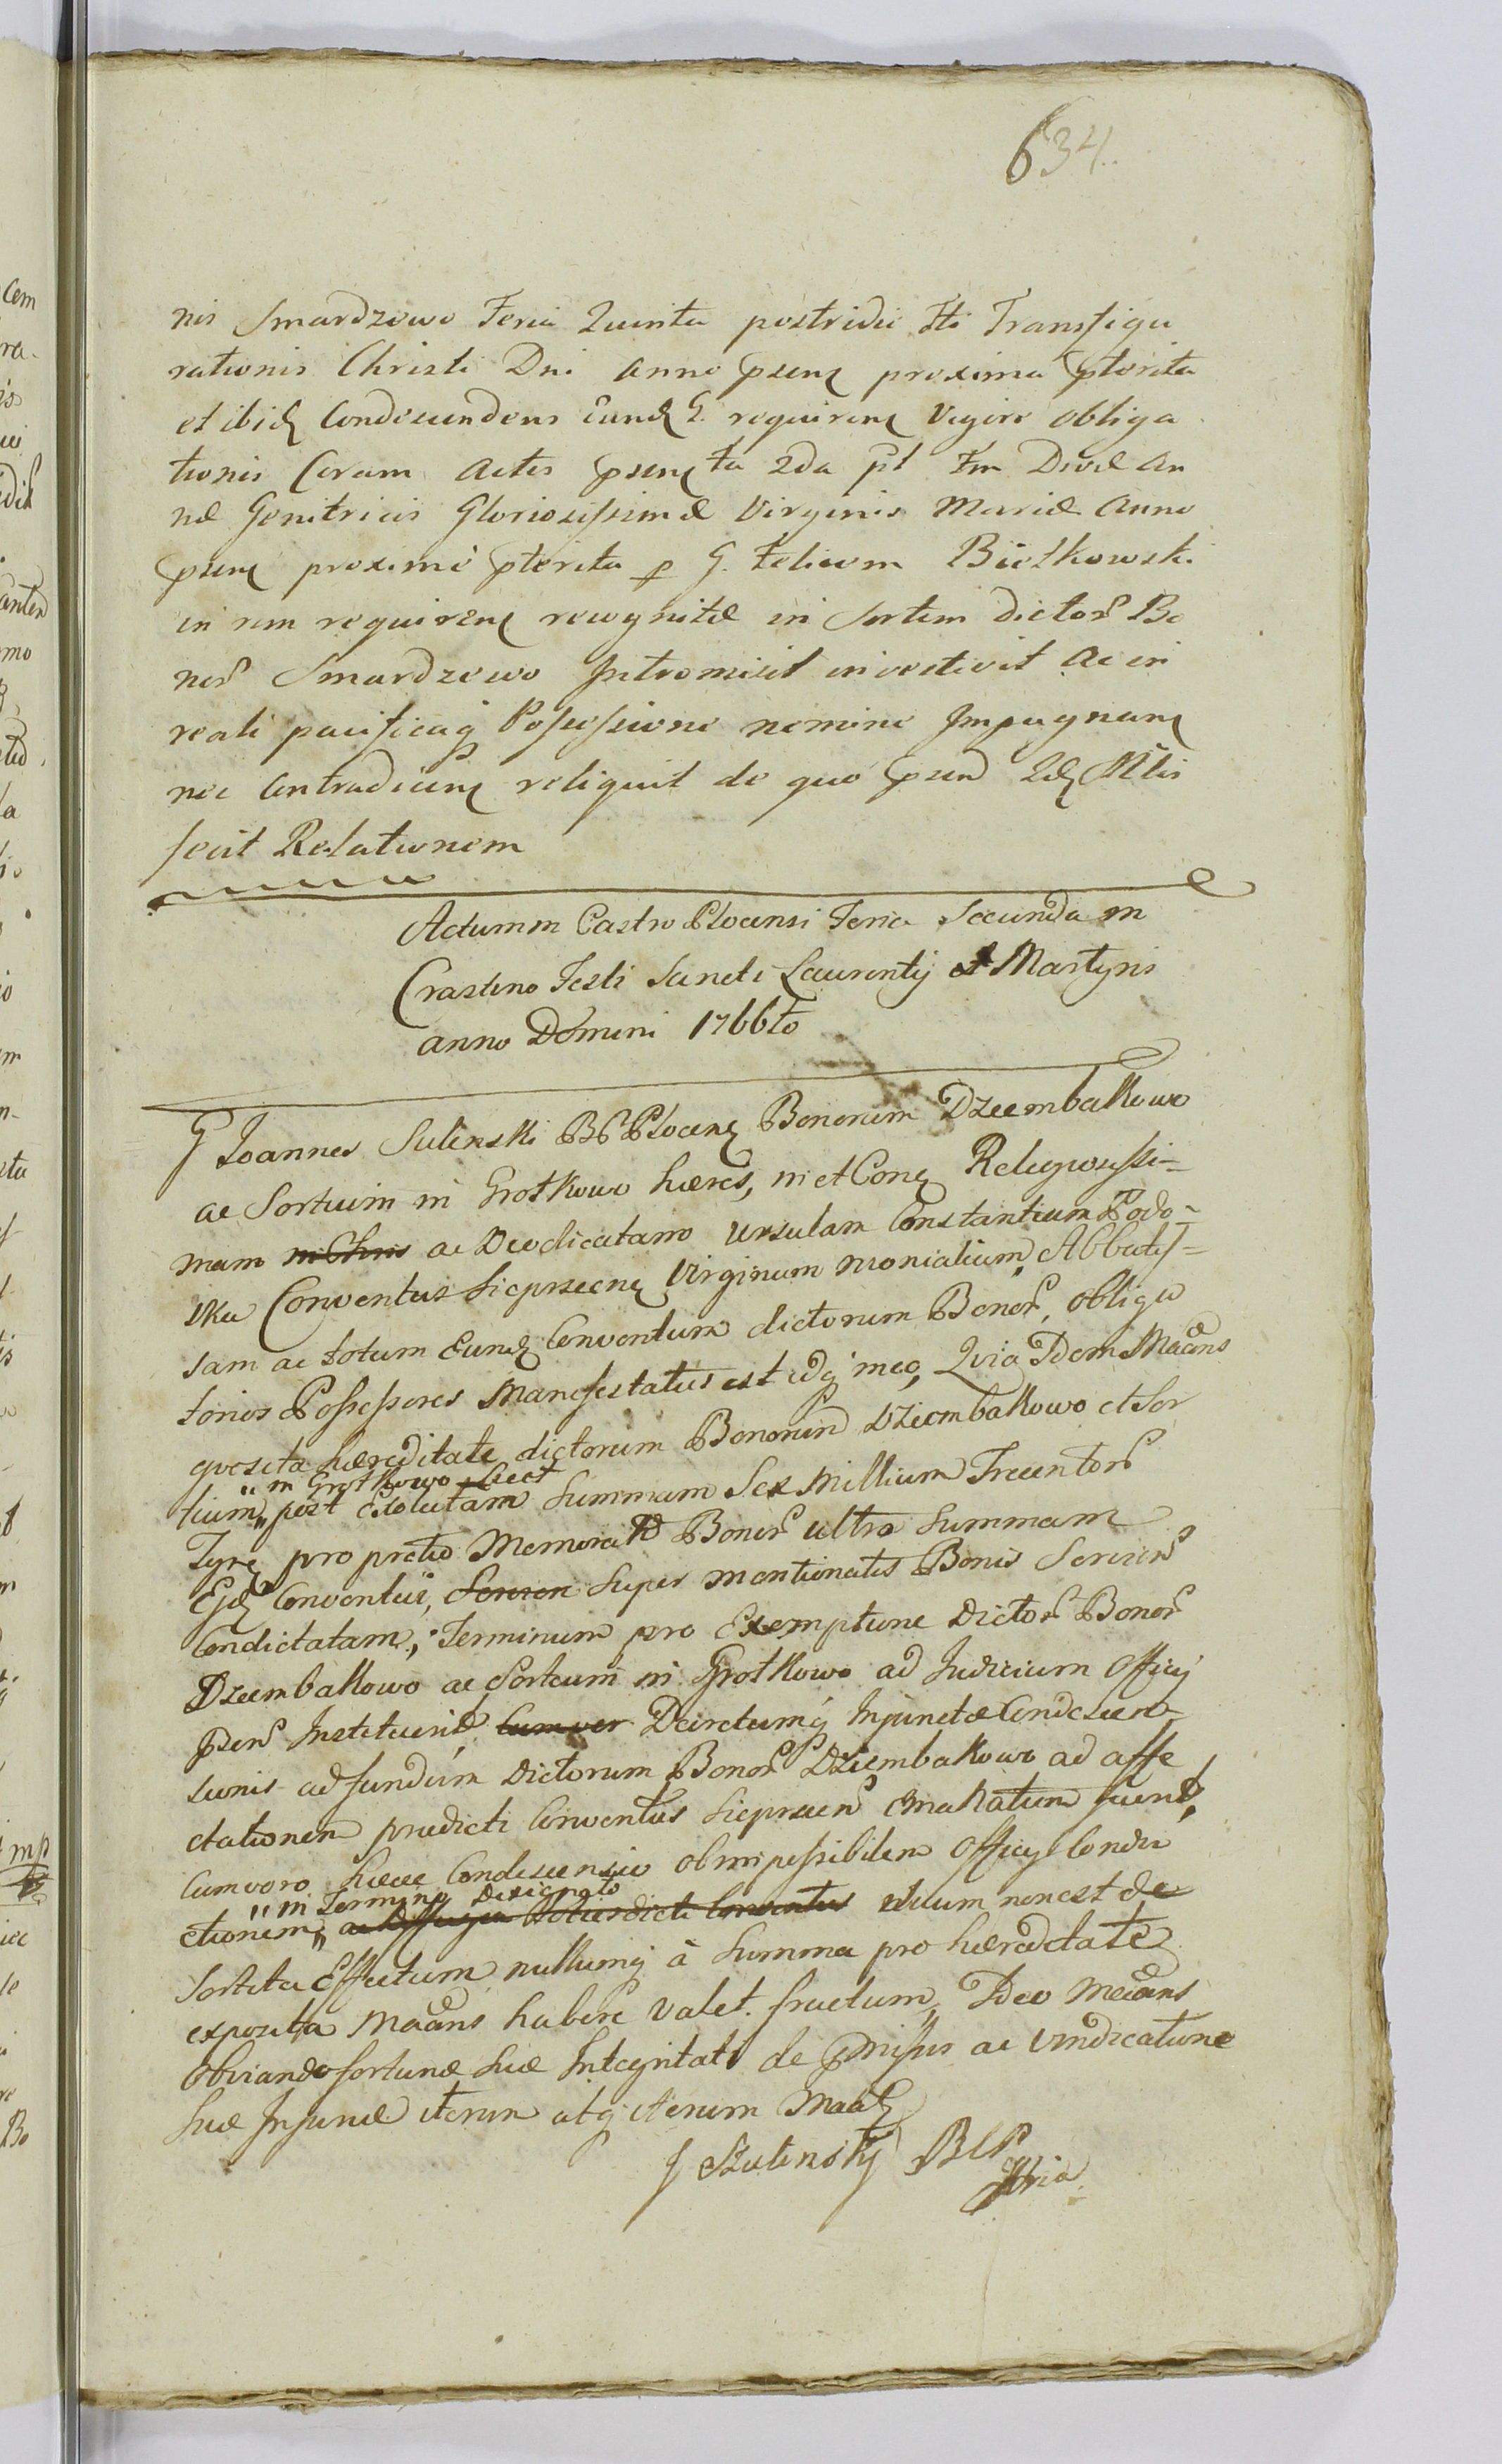 634.
nis Smardzewo Feria Quinta postridie Fti Transfigu
rationis Christi Dni anno psenę proxima pterita
et ibidę Condescendens Eundę G. requirenę Vigore obliga
tionis Coram Actis psenę ta 2da pt Fm Divæ An
næ Genitricis Gloriosissimæ Virginis Mariæ Anno
psenę proxime pterita p G. Felicem Bietkowski
in rem requirenę recognitæ in Sortem dictor Bo
nor Smardzewo Intromisit investivit Ac in
reali pacificaq Possessione nemine Impugnanę
nec Contradicenę reliquit de quo psend Idę Mtlis
fecit Relationem
Actum in Castro Plocensi Feria Secunda in
Crastino Festi Sancti Laurentij et Martyris
anno Domini 1766to
G Joannes Sulinski BG Plocenę Bonorum Dziembakowo
ac Sortium in Grotkowo hæres, in et Conę Religiosissi-
mam in Chris ac Deodicatam Ursulam Constantiam Podo-
ska Conventus Sieprzecnę Virginum monialium, Abbatis-
sam ac totum Eundę Conventum dictorum Bonor, obliga
torios Possessores Manifestatus est idq ineo, Quia Idem Maans
quesita hæreditate dictorum Bonorum Dziembakowo et Sor
" in Grotkowo, licet
tium " post Exolutam Summam Sex Millium Trecentor
Tynę pro pretio Memorato Bonor ultra Summam
Ejdę Conventui, Servien Super mentionatis Bonis Servien
Condictatam, Terminum pro Exemptione Dictor Bonor
Dziembakowo ac Sortium in Grotkowo ad Judicium Officij
psen Instituerit, Cum ver Decretumq Injunctæ Condescen-
sionis ad fundum Dictorum Bonor Dziembakowo ad affe
ctationem prædicti Conventus Sieprcen Emanatum fuerit,
Cum vero hæcce Condescensio ob impossibilem Officij Condu
" in Termino Designato
ctionem " ac totiesdicti Conventus suum non est de
Sortita Effectum nullumq à Summa pro hæreditate
exposita Maans habere valet fructum, Ideo Maans
Obviando fortunæ Suæ Integritati de pmissis ac vindicatione
Suæ Injuriæ iterum atq iterum Maatę
J Szulinsky BGP